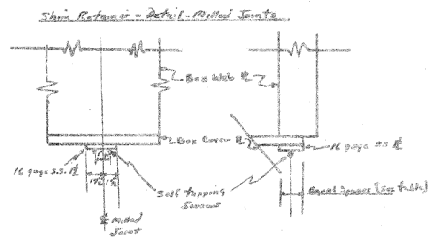 Shim Retainer - Detail - Milled Joints
Box Web ℄
Box Cover ℄
16 gage S.S. ℄
16 gage S.S. ℄
Self tapping
Screws
Equal Spaces (See table)
℄ Milled
Joint